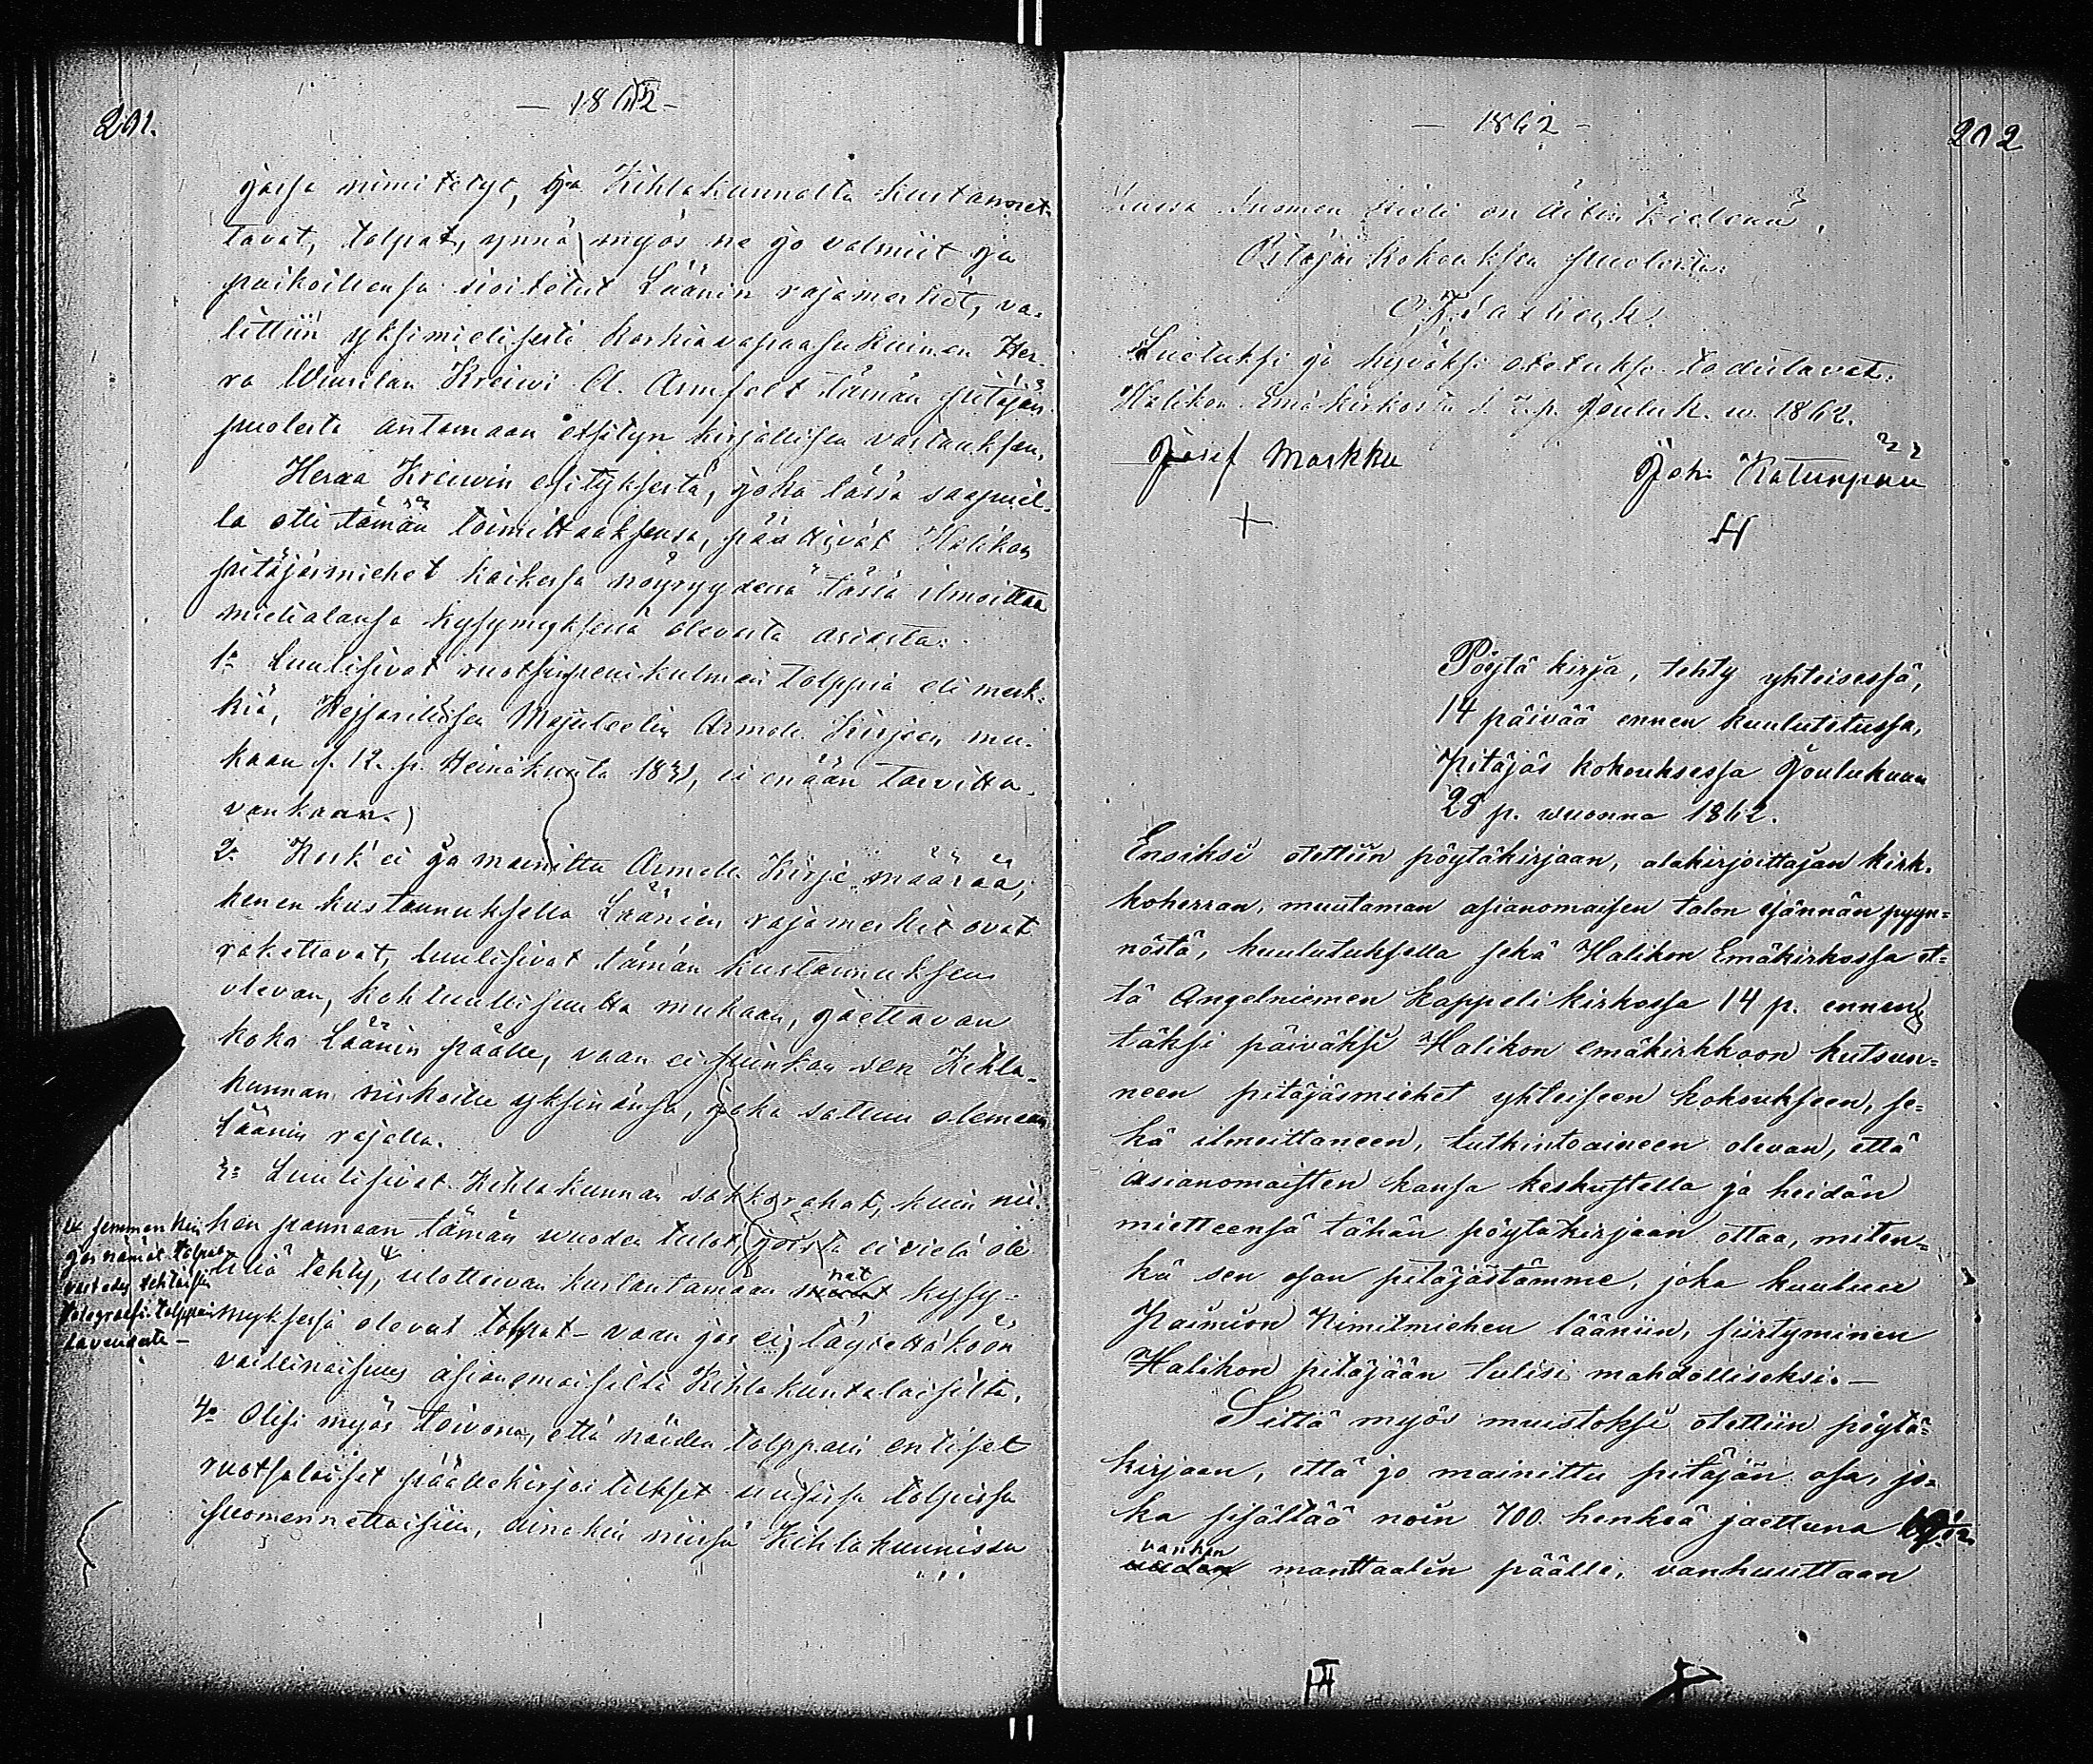 201.
— 1862 —
jassa nimitetyt, ja Kihlakunnalta kustannet-
tavat, tolpat, ynnä myös ne jo valmiit ja
paikoillensa sioitetut Läänin rajamerkit, va-
littiin yksimielisesti korkiavapaasukuinen Her-
ra Wiurilan Kreiwi A. Armfelt tämän pitäjän
puolesta antamaan esitetyn kirjallisen vastauksen.
Herra Kreiwin esityksestä, joka läsnä
la otti tämän toimittaaksensa, päättivät Halikon
pitäjäsmiehet kaikessa nöyryydessä tässä ilmoittaa
mielialansa kysymyksessä olevasta asiasta:
1o Luulisivat ruotsinpenikulmien tolppia eli merk-
kiä, Keisarillisen Majuteetin Armoll. Kirjeen mu-
kaan s. 12. p. Heinäkuuta ei enään tarvitta-
van kaan.
2o Kosk'ei ja mainittu Armoll. Kirje määrää,
kenen kustannuksella Läänien rajamerkit ovat
rakettavat, luulisivat tämän kustannuksen
olevan, kohtuullisuutta mukaan, jaettavan
koko Läänin päälle, vaan ei suinkaan sen Kihla-
kunnan niskoille yksinänsä, joka sattuu olemaan
Läänin rajalla.
3o Luulisivat Kihlakunnan sakkorahat, kuin nii-
hen pannaan tämän wuoden tulot, joista ei vielä ole
tiliä tehty, ulottuvan kustantamaan nät kysy-
myksessä olevat tolpat – vaan jos ei, täytettäköön
vaillinaisuus asianomaisilta Kihlakuntalaisilta.
4o Olisi myös toivova, että näiden tolppain entiset
ruotsalaiset päällekirjoitukset uusissa tolpissa
suomennettaisiin, ainakin niissä Kihlakunnissa
semmenkin
jos nämät tolpat
tehtäisiin
telegraafi-tolppain
tavuudesta —
— 1862 —
202
kussa Suomen kieli on äitin kielenä.
Pitäjän kokouksen puolesta:
Luetuksi ja hyväksi otetuksi todistavat.
Halikon Emäkirkosta s. 7. p. Jouluk. w. 1862.
Josef Markku
Joh. Katunpää
+
H
Pöytäkirja, tehty yhteisessä,
14 päivää ennen kuulutetussa,
Pitäjäs kokouksessa Joulukuun
28 p. wuonna 1862.
Ensiksi otettiin pöytäkirjaan, alakirjoittajan kirk-
koherran, muutaman asianomaisen talon isännän pyyn-
nöstä, kuulutuksella sekä Halikon Emäkirkossa et-
tä Angelniemen kappelikirkossa 14 p. ennen
täksi päiväksi Halikon emäkirkkoon kutsun-
neen pitäjäsmiehet yhteiseen kokoukseen, se-
kä ilmoittaneen, tutkintoaineen olevan, että
asianomaisten kansa keskustella ja heidän
mietteensä tähän pöytäkirjaan ottaa, miten-
kä sen osan pitäjästämme, joka kuuluu
Paimion Nimitmiehen lääniin, siirtyminen
Halikon pitäjään tulisi mahdolliseksi. —
Sittä myös muistoksi otettiin pöytä-
kirjaan, että jo mainittu pitäjän osa, jo-
ka sisältää noin 700 henkeä jaettuna
vanhan
uuden manttaalin päälle, vanhuuttaan